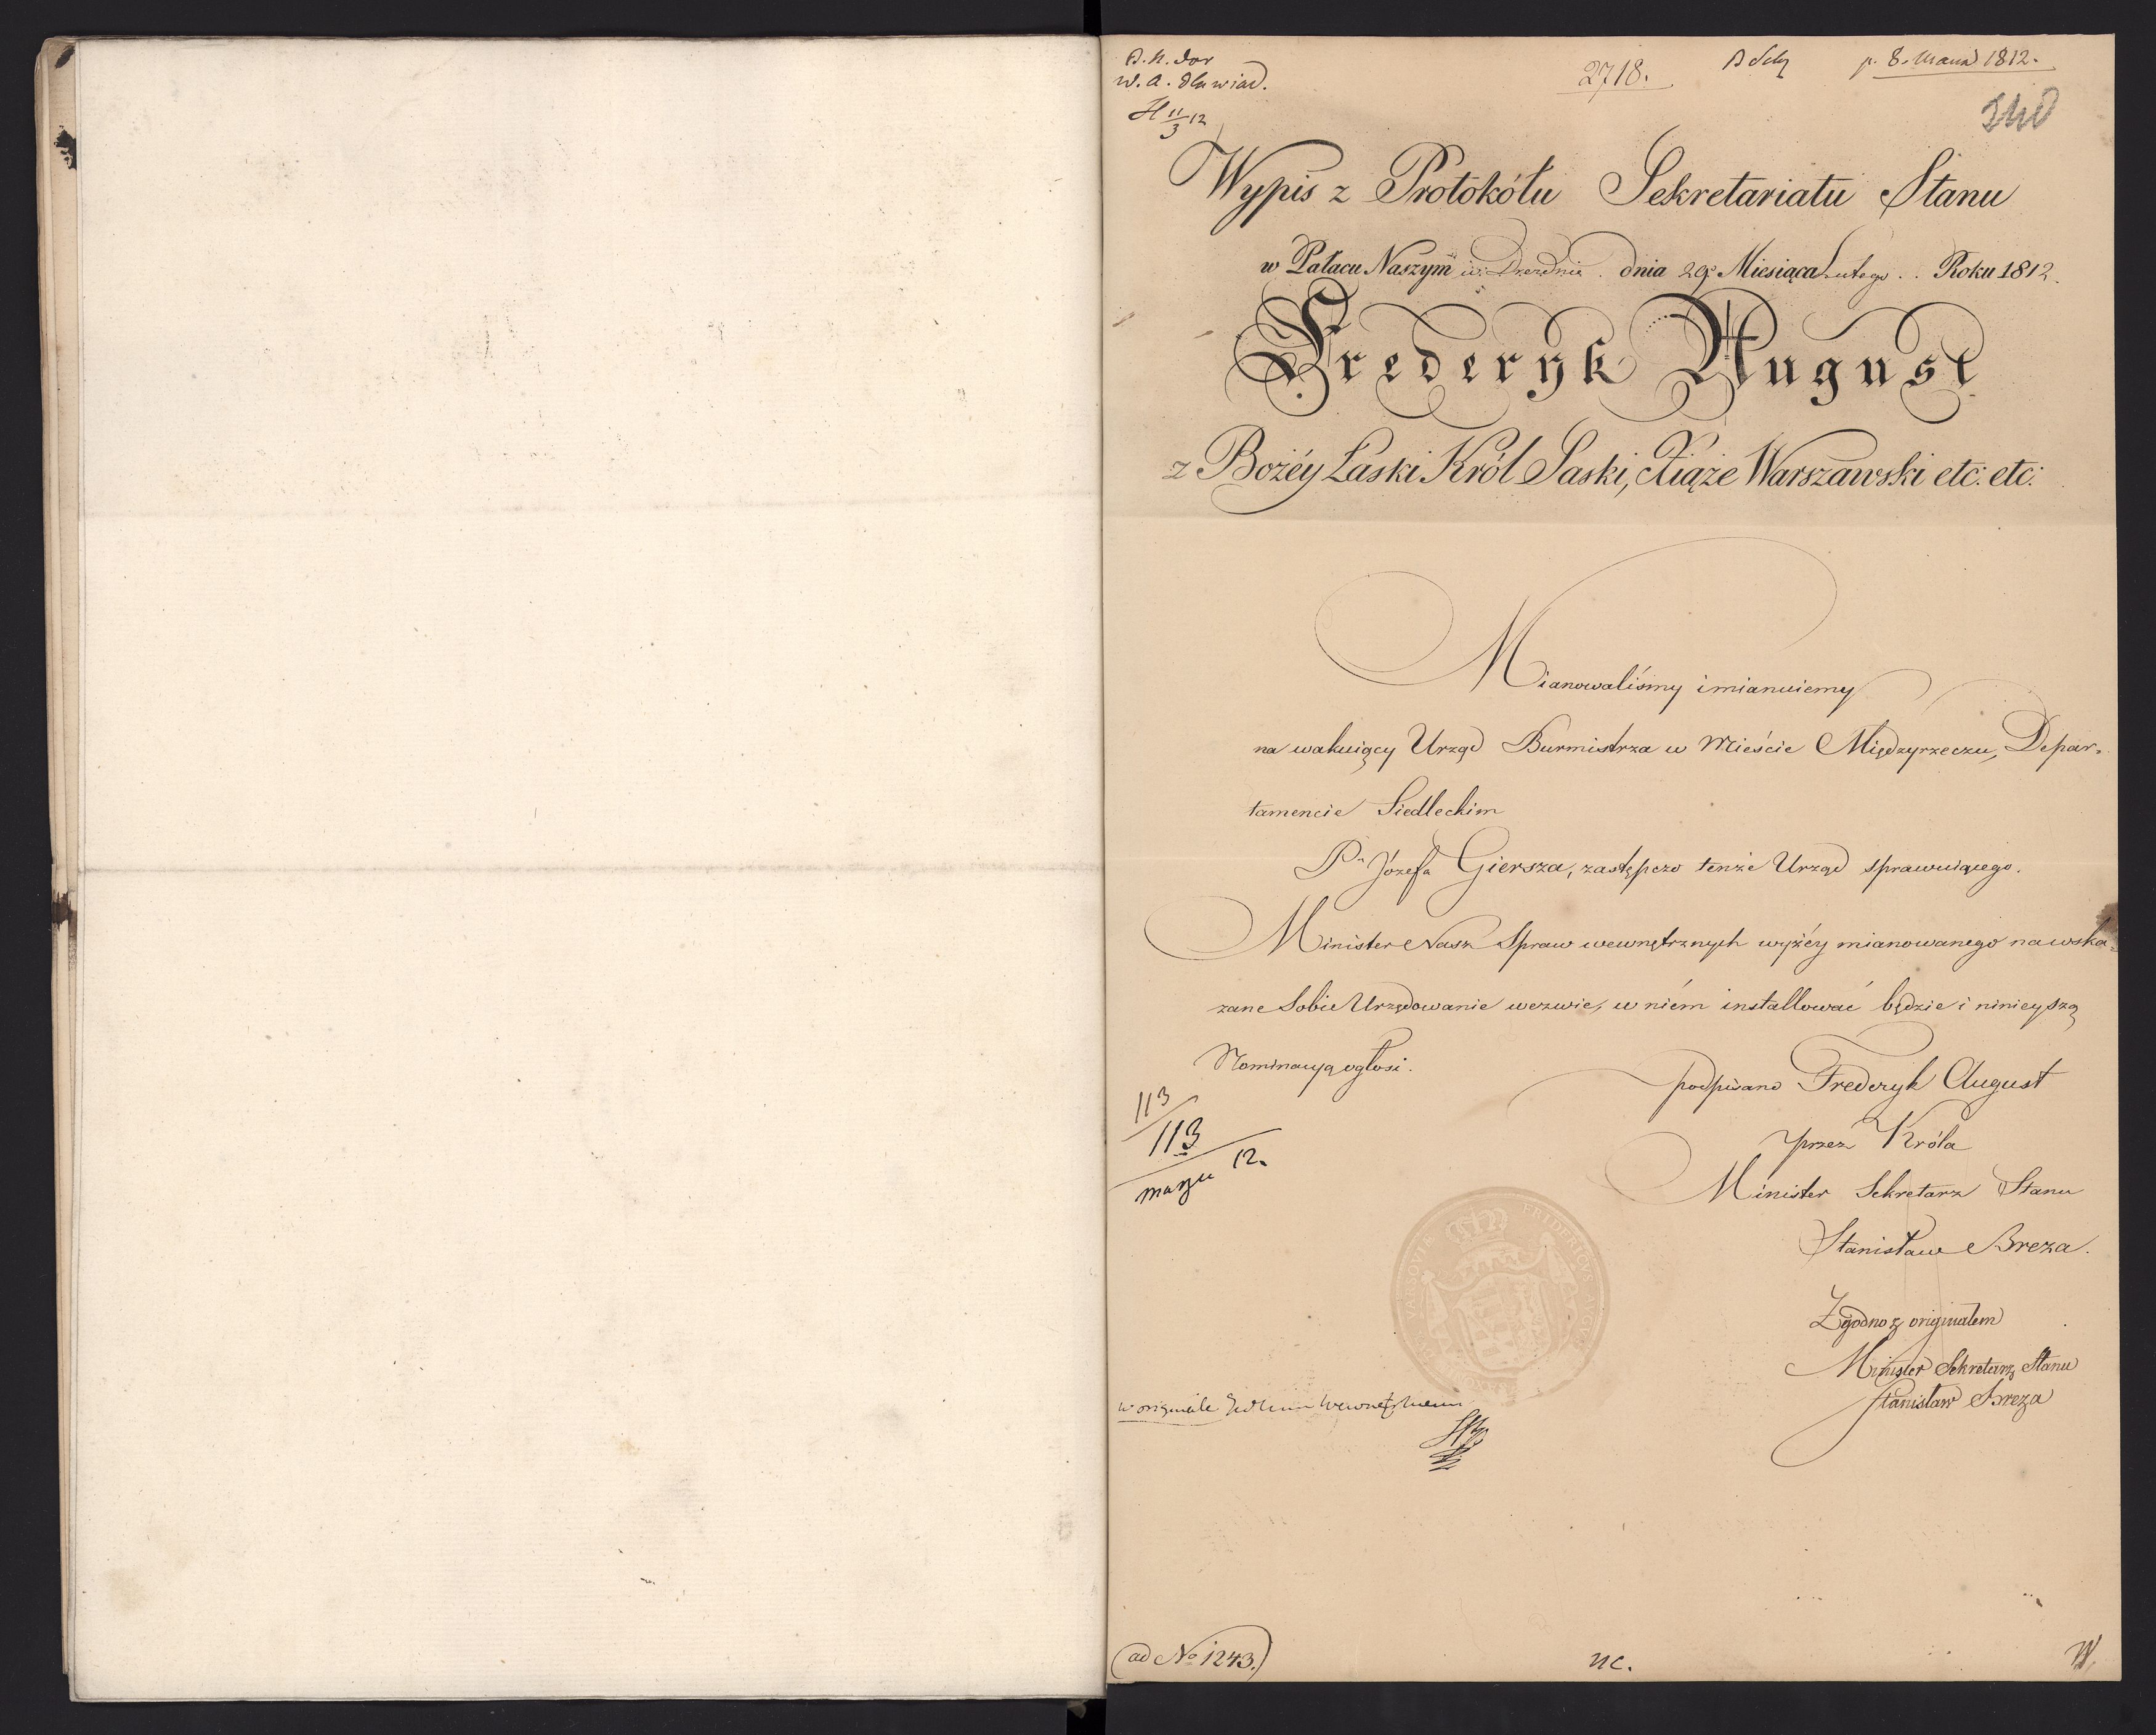 W. A. dla wiad.
2718.
p. 8. Marca 1812.
H 11/3 12
340
Wypis z Protokółu Sekretariatu Stanu
w Pałacu Naszym w Dreznie dnia 29. Miesiąca Lutego Roku 1812.
Frederyk August
z Bożéy Łaski Król Saski, Xiąże Warszawski etc: etc:
Mianowaliśmy i mianuiemy
na wakuiący Urząd Burmistrza w Mieście Międzyrzeczu, Depar=
tamencie Siedleckim
Pa Józefa Giersza, zastępczo tenże Urząd sprawuiącego.
Minister Nasz Spraw wewnętrznych wyżéy mianowanego na wska=
zane Sobie Urzędowanie wezwie, w niém installować będzie i ninieyszą
Nominacyą ogłosi.
podpisano Frederyk August
przez Króla
Minister Sekretarz Stanu
Stanisław Breza.
113
113
marzu 12.
FRIDERICVS AVGVS
VARSOVIÆ
Zgodno z originałem
Minister Sekretarz Stanu
Stanisław Breza
w originale
(ad No 1243.)
nc.